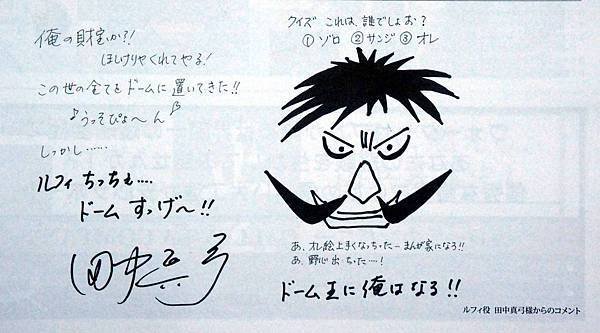 俺の財宝か?!
ほしけりゃくれてやる!
この世の全てをドームに置いてきた!!
♪うっそぴょ〜ん♪
しっかし‥‥‥
ルフィ ちっちぇ‥‥
ドーム すっげ〜!!
田中真弓
クイズ これは、誰でしょお?
①ゾロ ②サンジ ③オレ
あ、オレ絵上手くなっちったーまんが家になろ!!
あ、野心出ちった‥‥!
ドーム王に俺はなる!!
ルフィ役 田中真弓様からのコメント